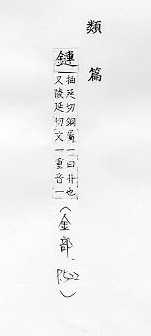 類篇
鏈
抽延切銅屬一曰井也
又陵延切文一重音一
(金部、P522)